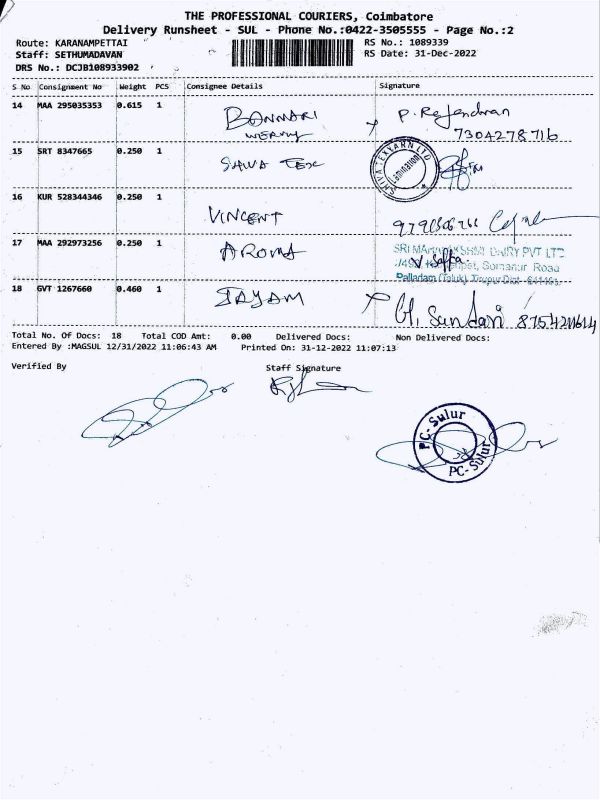 THE PROFESSIONAL COURIERS, Coimbatore
Delivery Runsheet - SUL - Phone No.:0422-3505555 - Page No.:2
Route: KARANAMPETTAI
RS No.: 1089339
Staff: SETHUMADAVAN
RS Date: 31-Dec-2022
DRS No.: DCJB108933902
S No Consignment No Weight PCS Consignee Details Signature
14 MAA 295035353 0.615 1 BANNARI P. Rajendran
7304278716
15 SRT 8347665 0.250 1 SHIVA TEX
SHIVA TEXYARN LTD
16 KUR 528344346 0.250 1 VINCENT
17 MAA 292973256 0.250 1 AROMA
DAIRY PVT LTD
Somanur Road
Palladam (Taluk), Tirupur Dist
18 GVT 1267660 0.460 1 JAYAM
Total No. Of Docs: 18 Total COD Amt: 0.00 Delivered Docs: Non Delivered Docs:
Entered By :MAGSUL 12/31/2022 11:06:43 AM Printed On: 31-12-2022 11:07:13
Verified By Staff Signature
PC-Sulur
PC-Sulur